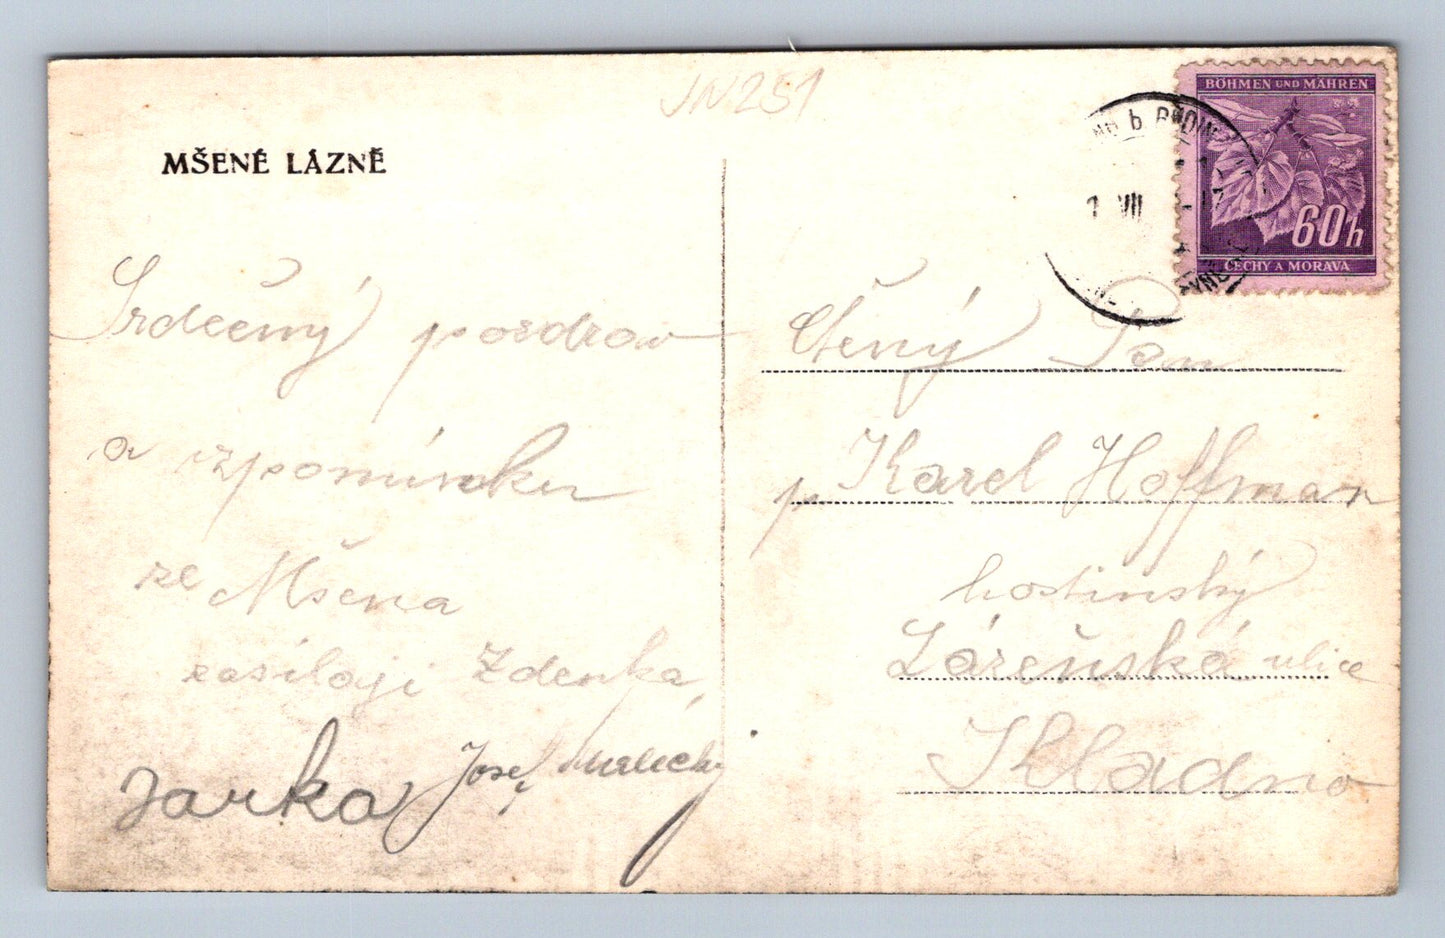 VN251
MŠENÉ LÁZNĚ
BÖHMEN UND MÄHREN
60h
ČECHY A MORAVA
VII
Srdečný pozdrav
a vzpomínku
ze Mšena
zasílají Zdenka,
Jarka Josef
Ctěný Pan
p Karel Hoffman
hostinský
Lázeňská ulice
Kladno